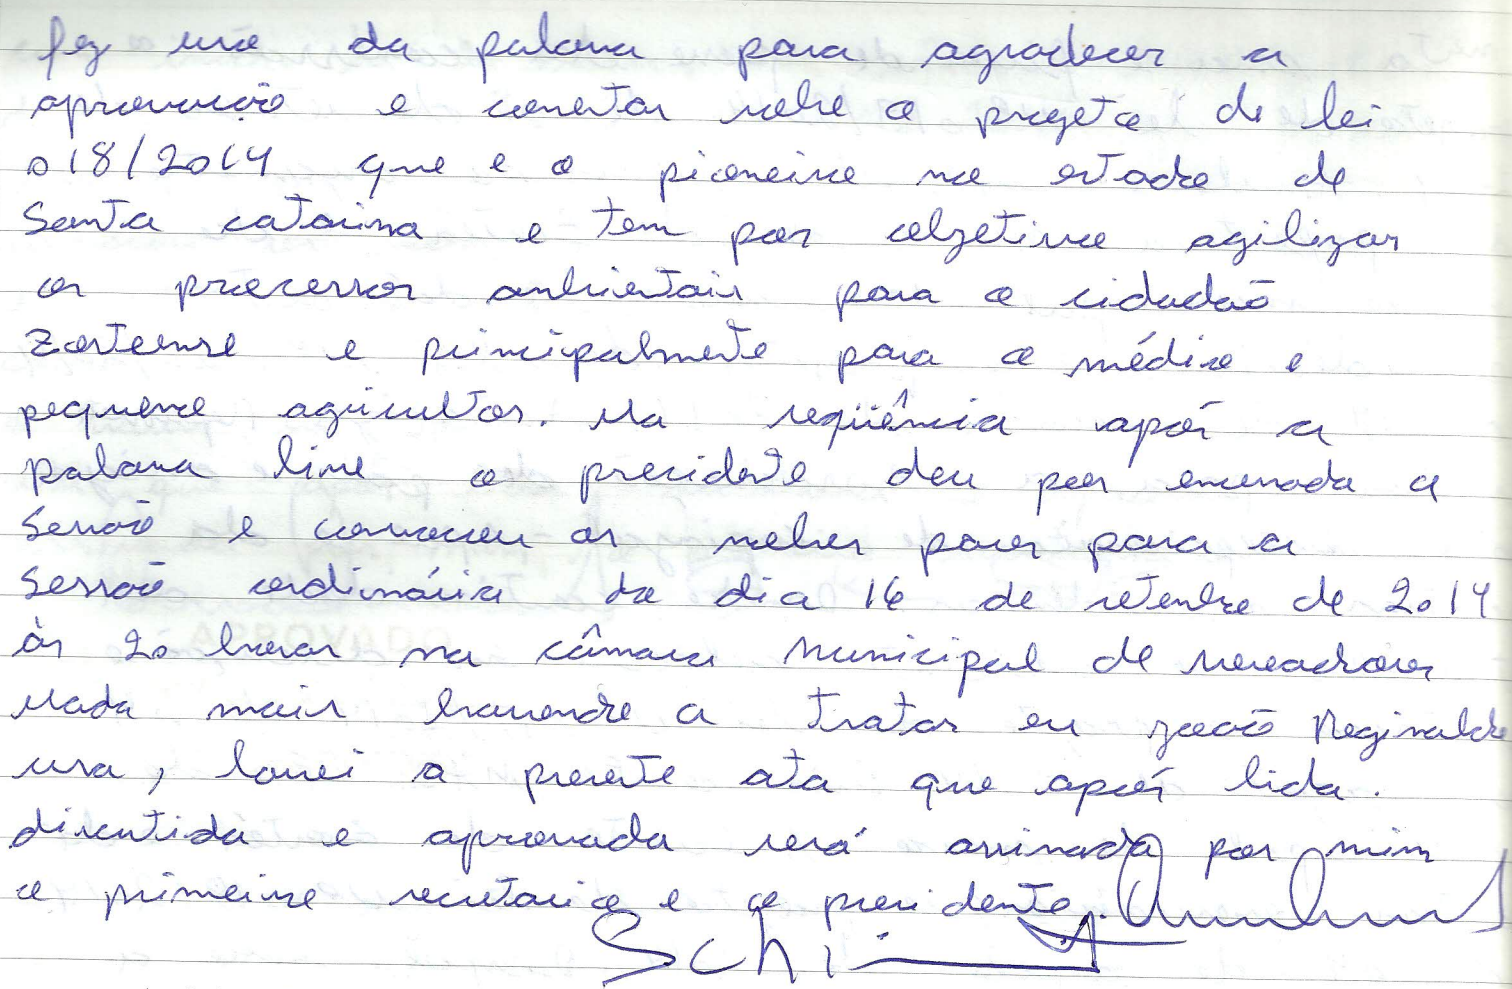 fez uso da palavra para agradecer a
aprovação e comentar sobre o projeto de lei
018/2014 que e o pioneiro no estado de
Santa catarina e tem por objetivo agilizar
os processos ambientais para o cidadão
Zorteense e principalmente para o médio e
pequeno agricultor. Na seqüência após a
palavra livre o presidente deu por encerrada a
Sessão e convocou os nobres pares para a
Sessão ordinária do dia 16 de setembro de 2014
às 20 horas na câmara Municipal de vereadores
Nada mais havendo a tratar eu joão Reginaldo
lavrei a presente ata que após lida.
discutida e aprovada será assinada por mim
o primeiro secretario e o presidente.